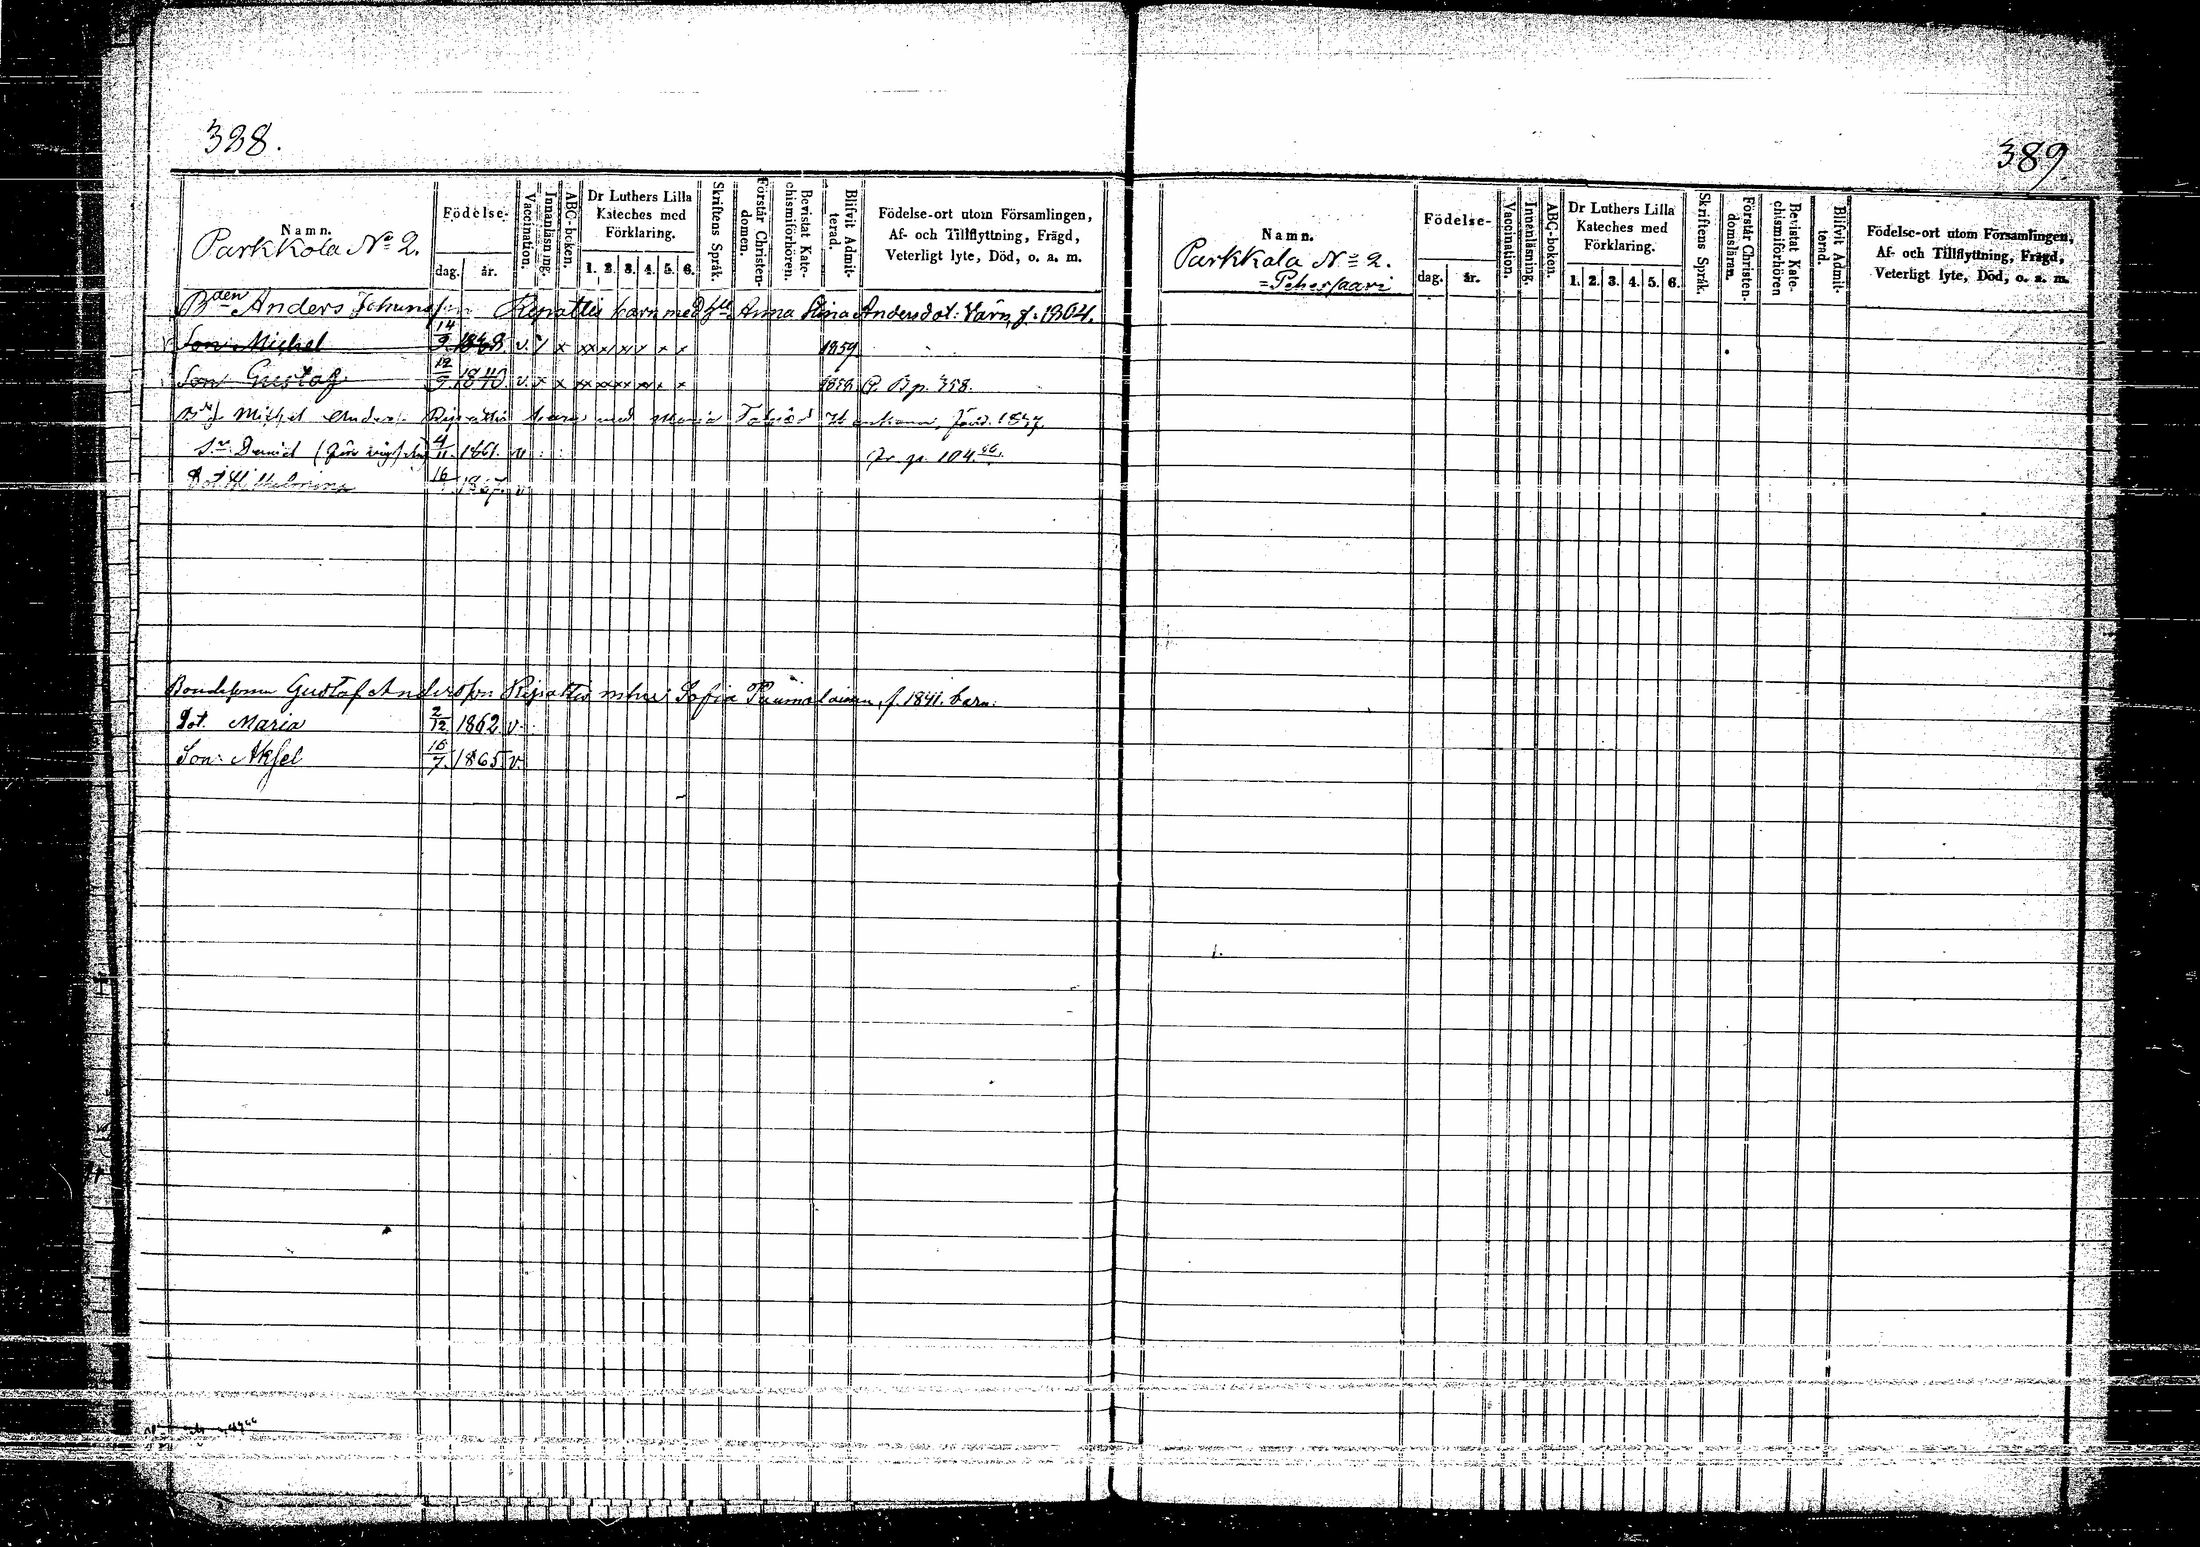 388.
Namn.
Parkkola No 2.
Födelse-
dag. år.
Vaccination.
Innanläsning.
ABC-boken.
Dr Luthers Lilla
Kateches med
Förklaring.
1. 2. 3. 4. 5. 6.
Skriftens Språk.
Förstår Christen-
domen.
Bevistat Kate-
chismiförhören.
Blifvit Admit-
terad.
Födelse-ort utom Församlingen,
Af- och Tillflyttning, Frägd,
Veterligt lyte, Död, o. a. m.
Bden Anders Johansson Repattis barn med Anna Stina Andersdot. Värn, f. 1804.
Son Michel 14/9 v. x x x x x x x 1859
Son Gustaf 12/9 1840. v. x x x x x x x x 1859. P. Bp. 358.
Michel Anders. Repattis barn med Maria född 1837
Sn Daniel 4/11 1861. v p. 104.
Dot. Wilhelmina 16 v
Bondesonen Gustaf Andersson Repattis m. hu: Sofia f. 1841. barn:
Dot. Maria 2/12 1862 v.
Son: Aksel 7. 1865 v.
389.
Namn.
Parkkola No 2.
= Pehersaari
Födelse-
dag. år.
Vaccination.
Innenläsning.
ABC-boken.
Dr Luthers Lilla
Kateches med
Förklaring.
1. 2. 3. 4. 5. 6.
Skriftens Språk.
Förstår Christen-
domsläran.
Bevistat Kate-
chismiförhören
Blifvit Admit-
terad.
Födelse-ort utom Församlingen,
Af- och Tillflyttning, Frägd,
Veterligt lyte, Död, o. a. m.